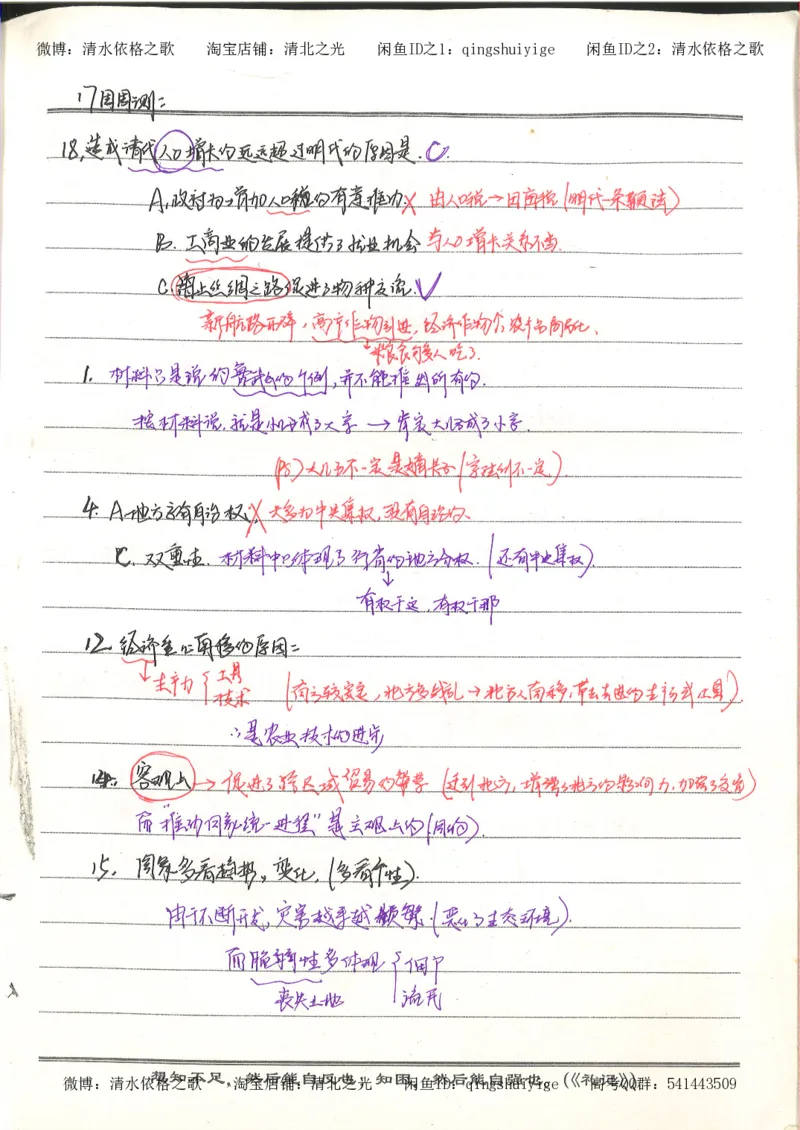 微博：清水依格之歌 淘宝店铺：清北之光 闲鱼ID之1：qingshuiyige 闲鱼ID之2：清水依格之歌
17周周测：
18,造成清代人口增长的远远超过明代的原因是. C.
A,政府为增加人口税的有意推动 × 由人口税→田亩税(明代一条鞭法)
B. 工商业的发展提供了就业机会 与人口增长关系不大.
C.海上丝绸之路促进了物种交流. ✓
新航路开辟，高产作物引进，经济作物
粮食够多人吃了.
1. 材料只是说的 个例,并不能推出所有的.
按材料说,就是小儿子成了大宗 → 肯定大儿子成了小宗.
(PS)大儿子不一定是嫡长子(宗法制不一定).
4. A.地方享有自治权 × 大多为中央集权,没有自治的、
C. 双重性. 材料中只体现了行省的地方分权.(还有中央集权)
有权干这,有权干那
12. 经济重心南移的原因：
生产力 { 工具 技术 (南方较安定,北方多战乱→北方人南移,带去先进的生产方式工具)
∴是农业技术的进步
14. 客观上→促进了跨区域贸易的繁荣 (运到北方,增强了北方的影响力,加强了交流)
而"推动国家统一进程"是主观上的(目的).
15. 图表多看趋势,变化.(多看个性).
由于不断开发,灾害越来越频繁.(恶化了生态环境).
而脆弱性多体现 { 佃户
丧失土地 流民
知不足，然后能自反也；知困，然后能自强也。(《礼记》)
微博：清水依格之歌 淘宝店铺：清北之光 闲鱼ID：qingshuiyige 闲鱼QQ群：541443509